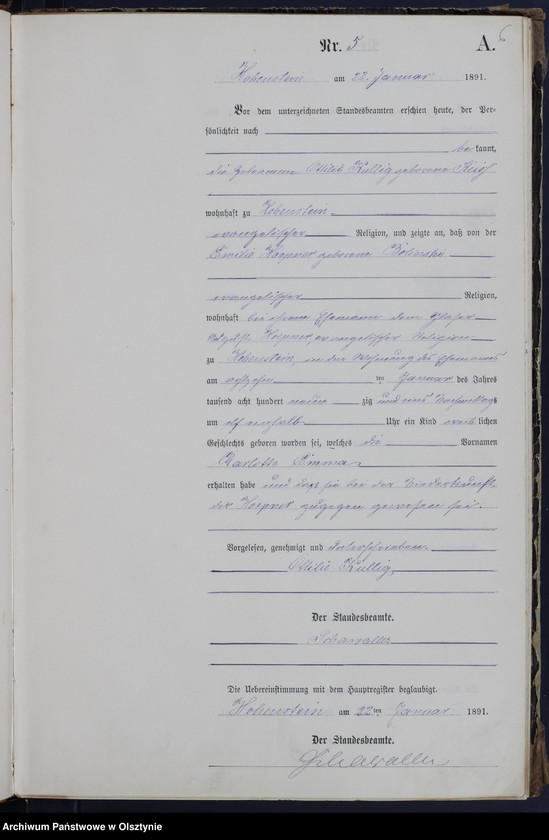 Nr. 5
A.
6
Hohenstein am 22. Januar 1891.
Vor dem unterzeichneten Standesbeamten erschien heute, der Per-
sönlichkeit nach
be kannt,
die Hebeamme Ottilie Kullig geborene
wohnhaft zu Hohenstein
evangelischer Religion, und zeigte an, daß von der
Emilie Hoepner geborene
evangelischer Religion,
wohnhaft bei ihrem Ehemann dem Glaser
August Hoepner, evangelischer Religion
zu Hohenstein, in der Wohnung des Ehemanns
am achtzehn ten Januar des Jahres
tausend acht hundert neun zig und eins Vormittags
um elf einhalb Uhr ein Kind weib lichen
Geschlechts geboren worden sei, welches die Vornamen
Charlotte Emma
erhalten habe und daß sie bei der Niederkunft
der Hoepner zugegen gewesen sei.
Vorgelesen, genehmigt und unterschrieben
Ottilie Kullig
Der Standesbeamte.
Schawaller
Die Uebereinstimmung mit dem Hauptregister beglaubigt.
Hohenstein am 22ten Januar 1891.
Der Standesbeamte.
Schawaller
Archiwum Państwowe w Olsztynie